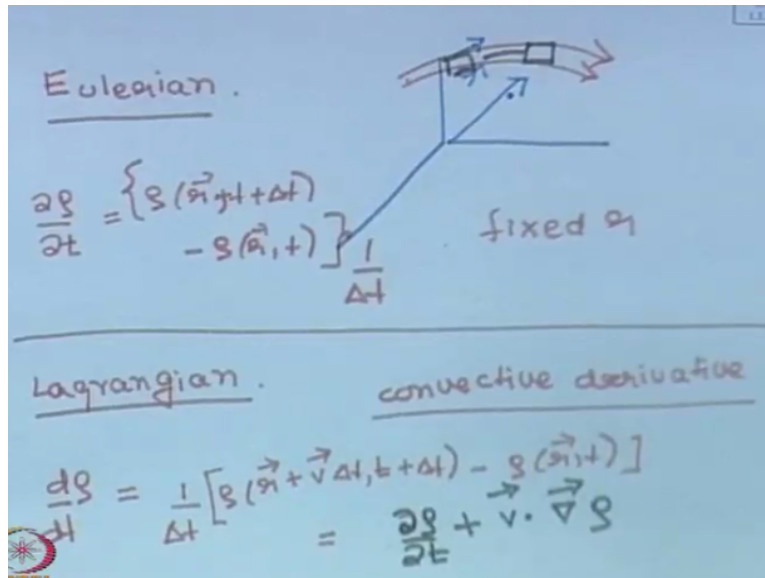 Eulerian.
∂ρ/∂t = {ρ(r⃗, t+Δt)
- ρ(r⃗, t)} 1/Δt
fixed r
Lagrangian.
convective derivative
dρ/dt = 1/Δt [ρ(r⃗ + v⃗ Δt, t + Δt) - ρ(r⃗, t)]
= ∂ρ/∂t + v⃗ · ∇⃗ ρ